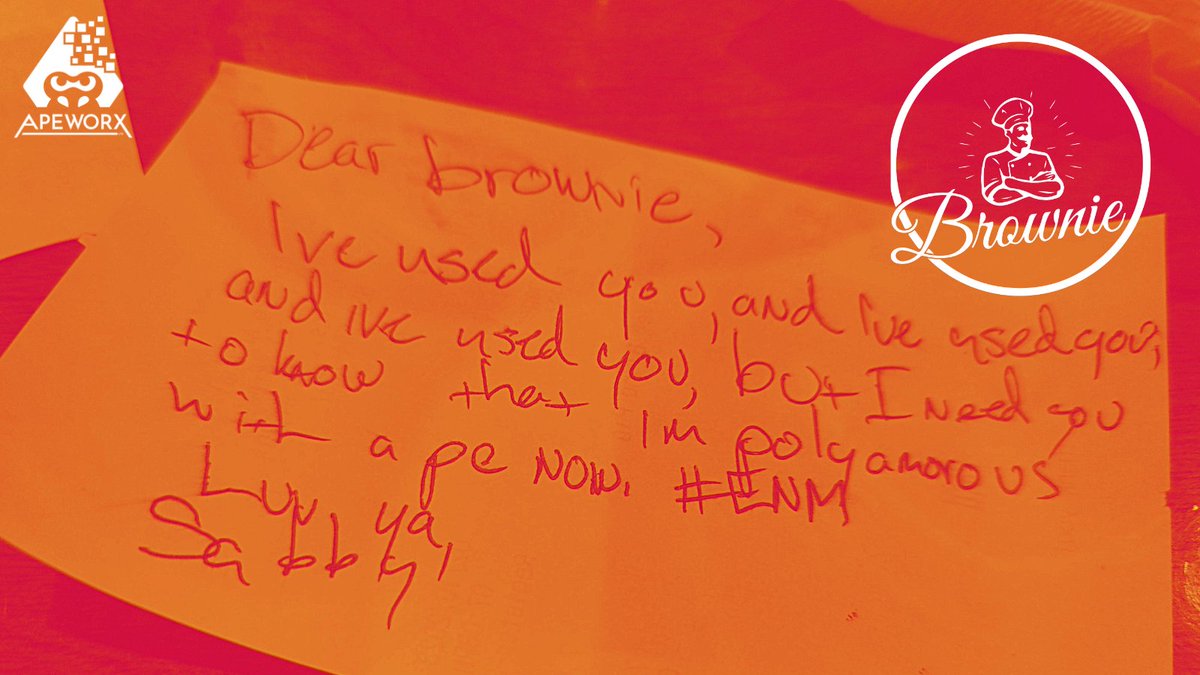 APEWORX
Brownie
Dear brownie,
Ive used you, and I've used you,
and ive used you, but I need you
to know that Im polyamorous
with ape now. #ENM
Luv, ya,
Sabby